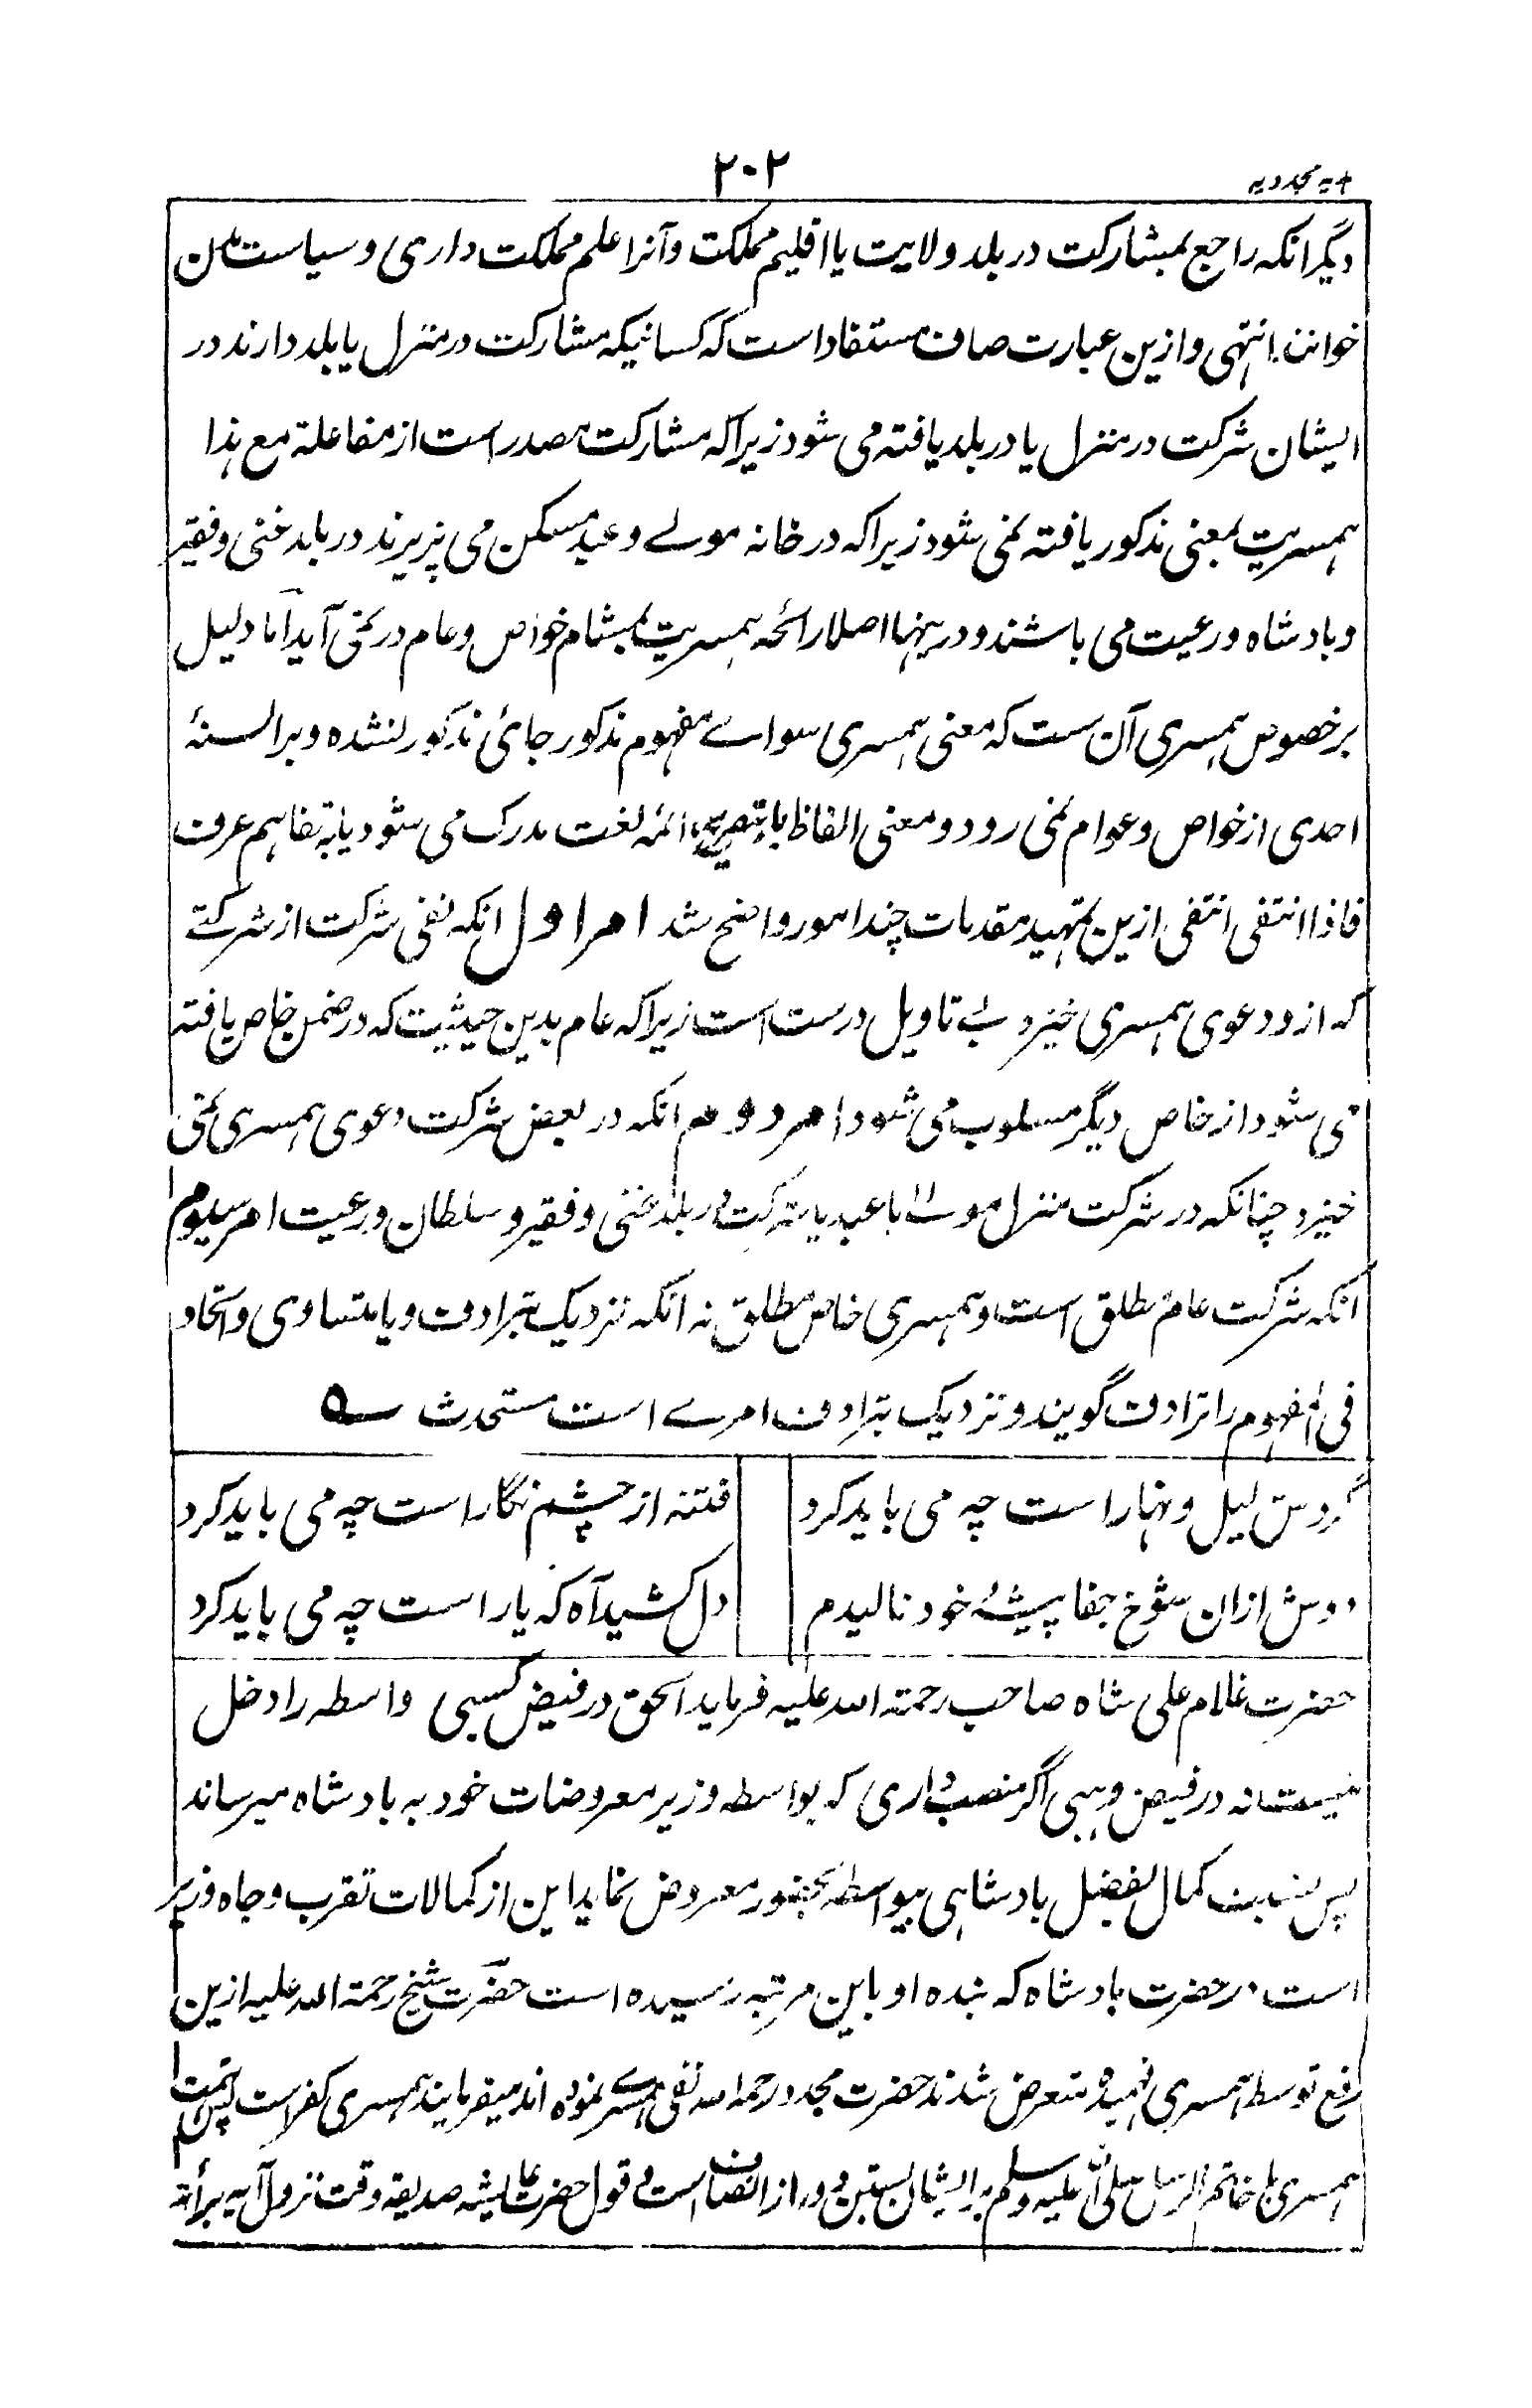 ۲۰۲
دیگر آنکه راجع بمشارکت در بلد و ولایت یا اقلیم مملکت و آنرا علم مملکت داری و سیاست مدن
خوانند انتهی و ازین عبارت صاف مستفاد است که کسانیکه مشارکت در منزل یا بلد دارند در
ایشان شرکت در منزل یا در بلد یافته می شود زیرا که مشارکت مصدر است از مفاعلة مع هذا
همسریت بمعنی مذکور یافته نمی شود زیرا که در خانه مولے و عبد مسکن می پزیرند در بلد غنی و فقیر
و بادشاه و رعیت می باشند و درینها اصلا رائحه همسریت بمشام خواص و عام در نمی آید اما دلیل
بر خصوص همسری آن ست که معنی همسری سواے مفهوم مذکور جائی مذکور نشده و بر السنۂ
احدی از خواص و عوام نمی رود و معنی الفاظ یا بتصریح ائمه لغت مدرک می شود یا به تفاهم عرف
فاذا انتفی انتفی ازین تمهید مقدمات چند امور واضح شد امر اول انکه نفی شرکت از شرکتے
که ازو دعوی همسری خیزد بے تاویل درست است زیرا که عام بدین حیثیت که در ضمن خاص یافته
می شود از خاص دیگر مسلوب می شود امر دوم انکه در بعض شرکت دعوی همسری نمی
خیزد چنانکه در شرکت منزل مولے با عبد یا شرکت در بلد غنی و فقیر و سلطان و رعیت امر سیوم
انکه شرکت عام مطلق است و همسری خاص مطلق نه انکه نزدیک بترادف و یا بتساوی و اتحاد
فی المفهوم را ترادف گویند و نزدیک بترادف امرے است مستحدث ے
گردش لیل و نهار است چه می باید کرد فتنه از چشم نگار است چه می باید کرد
دوش ازان شوخ جفا پیشۂ خود نالیدم دل کشید آه که یار است چه می باید کرد
حضرت غلام علی شاه صاحب رحمة الله علیه فرماید الحق در فیض کسبی واسطه را دخل
نیست نه در فیض وهبی اگر منصب داری که بواسطه وزیر معروضات خود به بادشاه میرساند
پس بنسبت کمال بفضل بادشاهی بیواسطه بحضور معروض نماید این از کمالات تقرب و جاه وزیر
است در حضرت بادشاه که بنده او باین مرتبه رسیده است حضرت شیخ رحمة الله علیه ازین
رفع توسط همسری فهمیده متعرض شدند حضرت مجدد رحمه الله نفی همسرے نموده اند میفرمایند همسری کفر است پس تهمت
همسری با خاتم الرسل صلی الله علیه وسلم بر ایشان بستن دور از انصاف است و قول حضرت عایشه صدیقه وقت نزول آیه برأة